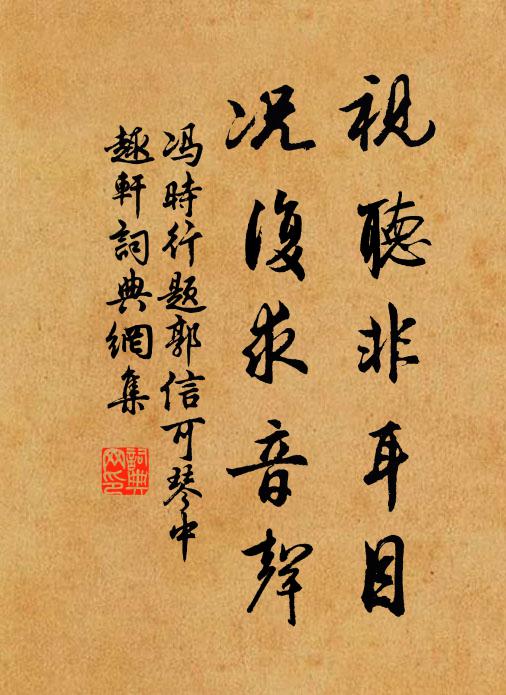 視聽非耳目
况復求音聲
冯時行題郭信可琴中
趣軒詞典網集
詞典網印